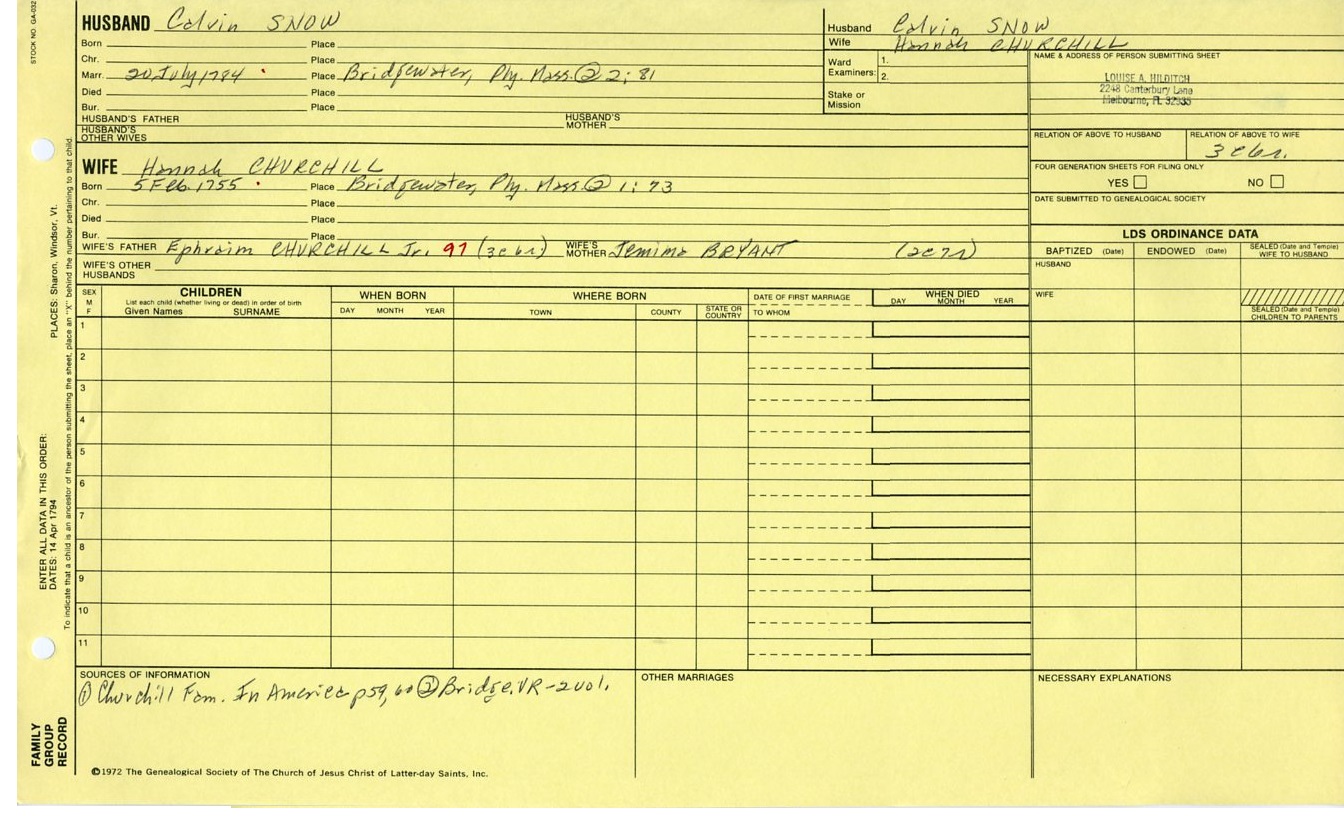 STOCK NO. GA-032
HUSBAND Calvin SNOW
Born Place
Chr. Place
Marr. 20 July 1784 Place Bridgewater, Ply. Mass. ② 2; 81
Died Place
Bur. Place
HUSBAND'S FATHER HUSBAND'S MOTHER
HUSBAND'S OTHER WIVES
WIFE Hannah CHURCHILL
Born 5 Feb. 1755 Place Bridgewater, Ply. Mass. ② 1: 73
Chr. Place
Died Place
Bur. Place
WIFE'S FATHER Ephraim CHURCHILL Jr. 97 (3c6r) WIFE'S MOTHER Jemima BRYANT (2c7r)
WIFE'S OTHER HUSBANDS
Husband Calvin SNOW
Wife Hannah CHURCHILL
Ward Examiners: 1.
2.
Stake or Mission
NAME & ADDRESS OF PERSON SUBMITTING SHEET
LOUISE A. HILDITCH
2248 Canterbury Lane
Melbourne, FL 32935
RELATION OF ABOVE TO HUSBAND RELATION OF ABOVE TO WIFE
3c6r.
FOUR GENERATION SHEETS FOR FILING ONLY
YES NO
DATE SUBMITTED TO GENEALOGICAL SOCIETY
LDS ORDINANCE DATA
BAPTIZED (Date) ENDOWED (Date) SEALED (Date and Temple) WIFE TO HUSBAND
HUSBAND
WIFE
SEALED (Date and Temple) CHILDREN TO PARENTS
SEX M F
CHILDREN
List each child (whether living or dead) in order of birth
Given Names SURNAME
WHEN BORN
DAY MONTH YEAR
WHERE BORN
TOWN COUNTY STATE OR COUNTRY
DATE OF FIRST MARRIAGE
TO WHOM
WHEN DIED
DAY MONTH YEAR
1
2
3
4
5
6
7
8
9
10
11
SOURCES OF INFORMATION
① Churchill Fam. In America p59, 60 ② Bridge. VR-2vol.
OTHER MARRIAGES
NECESSARY EXPLANATIONS
©1972 The Genealogical Society of The Church of Jesus Christ of Latter-day Saints, Inc.
FAMILY GROUP RECORD
ENTER ALL DATA IN THIS ORDER:
DATES: 14 Apr 1794
PLACES: Sharon, Windsor, Vt.
To indicate that a child is an ancestor of the person submitting the sheet, place an "X" behind the number pertaining to that child.